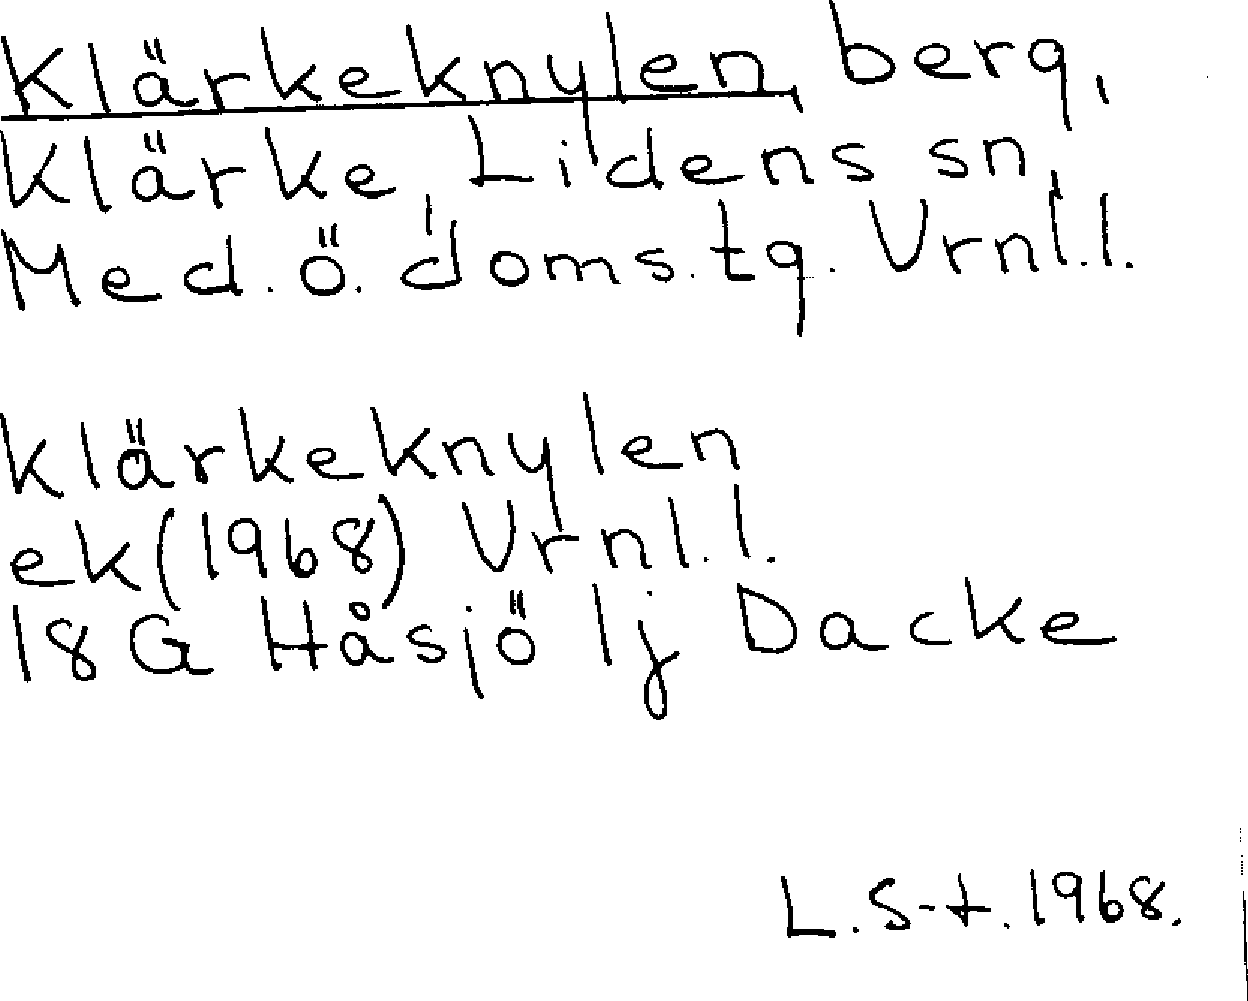 Klärkeknylen, berg,
Klärke, Lidens sn,
Med. ö. doms.tg. Vrnl.l.
Klärkeknylen
ek (1968) Vrnl.l.
18G Håsjö 1j Dacke
L. S-t. 1968.